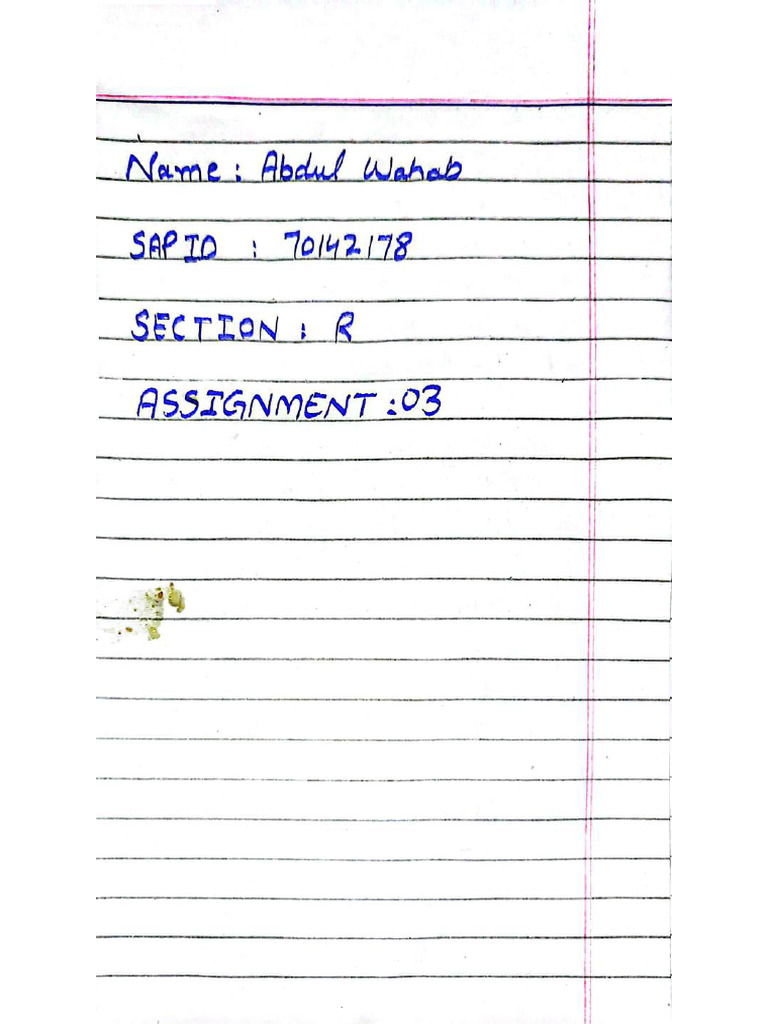 Name : Abdul Wahab
SAP ID : 70142178
SECTION : R
ASSIGNMENT : 03